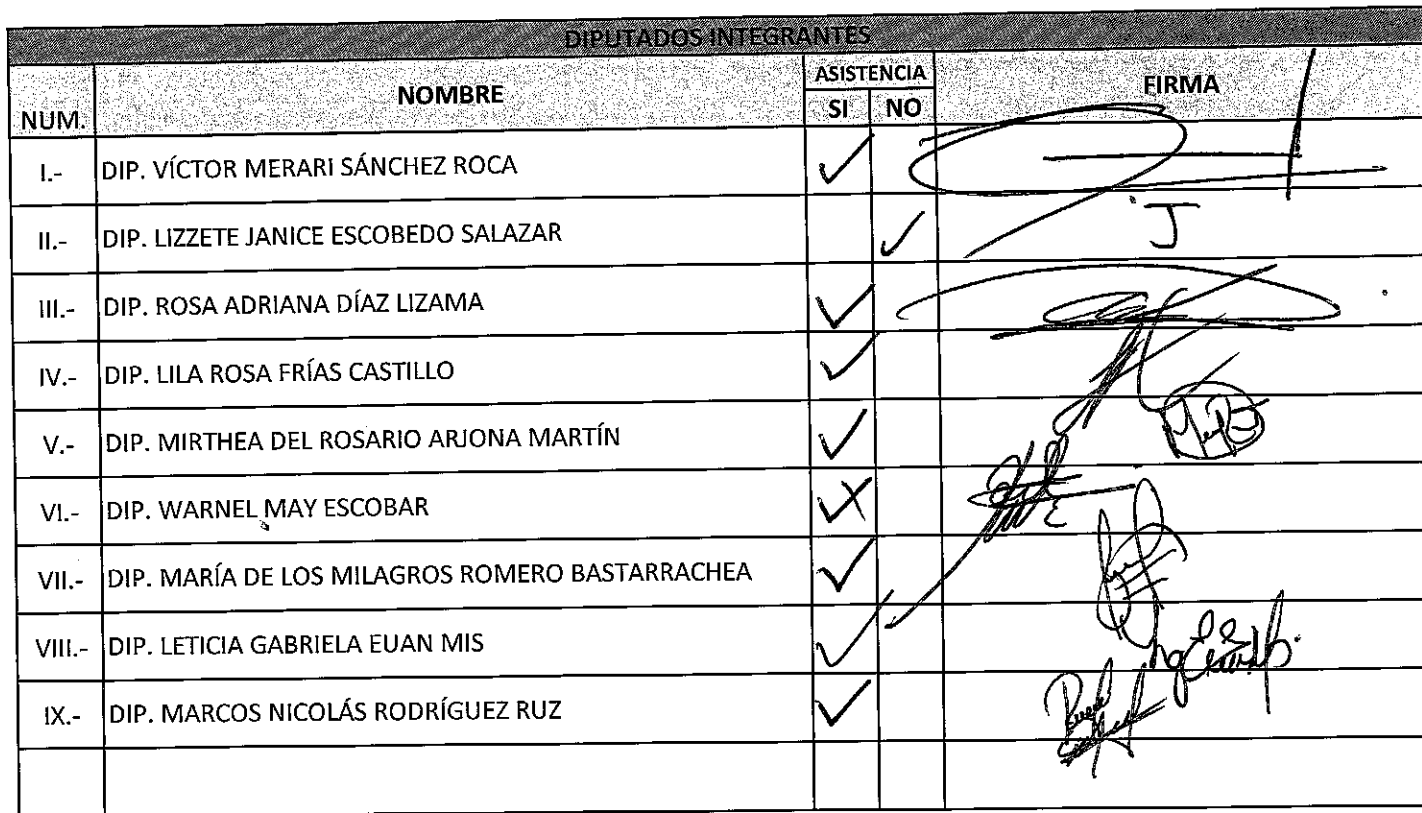 DIPUTADOS INTEGRANTES
NUM. NOMBRE ASISTENCIA FIRMA
SI NO
I.- DIP. VÍCTOR MERARI SÁNCHEZ ROCA ✓
II.- DIP. LIZZETE JANICE ESCOBEDO SALAZAR ✓ J
III.- DIP. ROSA ADRIANA DÍAZ LIZAMA ✓
IV.- DIP. LILA ROSA FRÍAS CASTILLO ✓
V.- DIP. MIRTHEA DEL ROSARIO ARJONA MARTÍN ✓
VI.- DIP. WARNEL MAY ESCOBAR ✓
VII.- DIP. MARÍA DE LOS MILAGROS ROMERO BASTARRACHEA ✓
VIII.- DIP. LETICIA GABRIELA EUAN MIS ✓
IX.- DIP. MARCOS NICOLÁS RODRÍGUEZ RUZ ✓